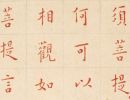 須菩提
何可以
相觀如
菩提言